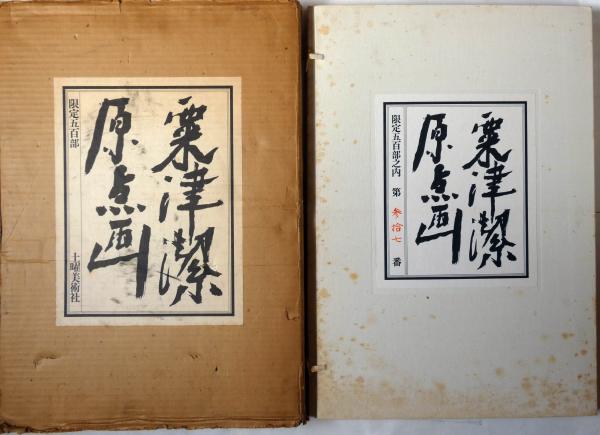 粟津潔
原点画
限定五百部
土曜美術社
粟津潔
原点画
限定五百部之内 第 参拾七 番